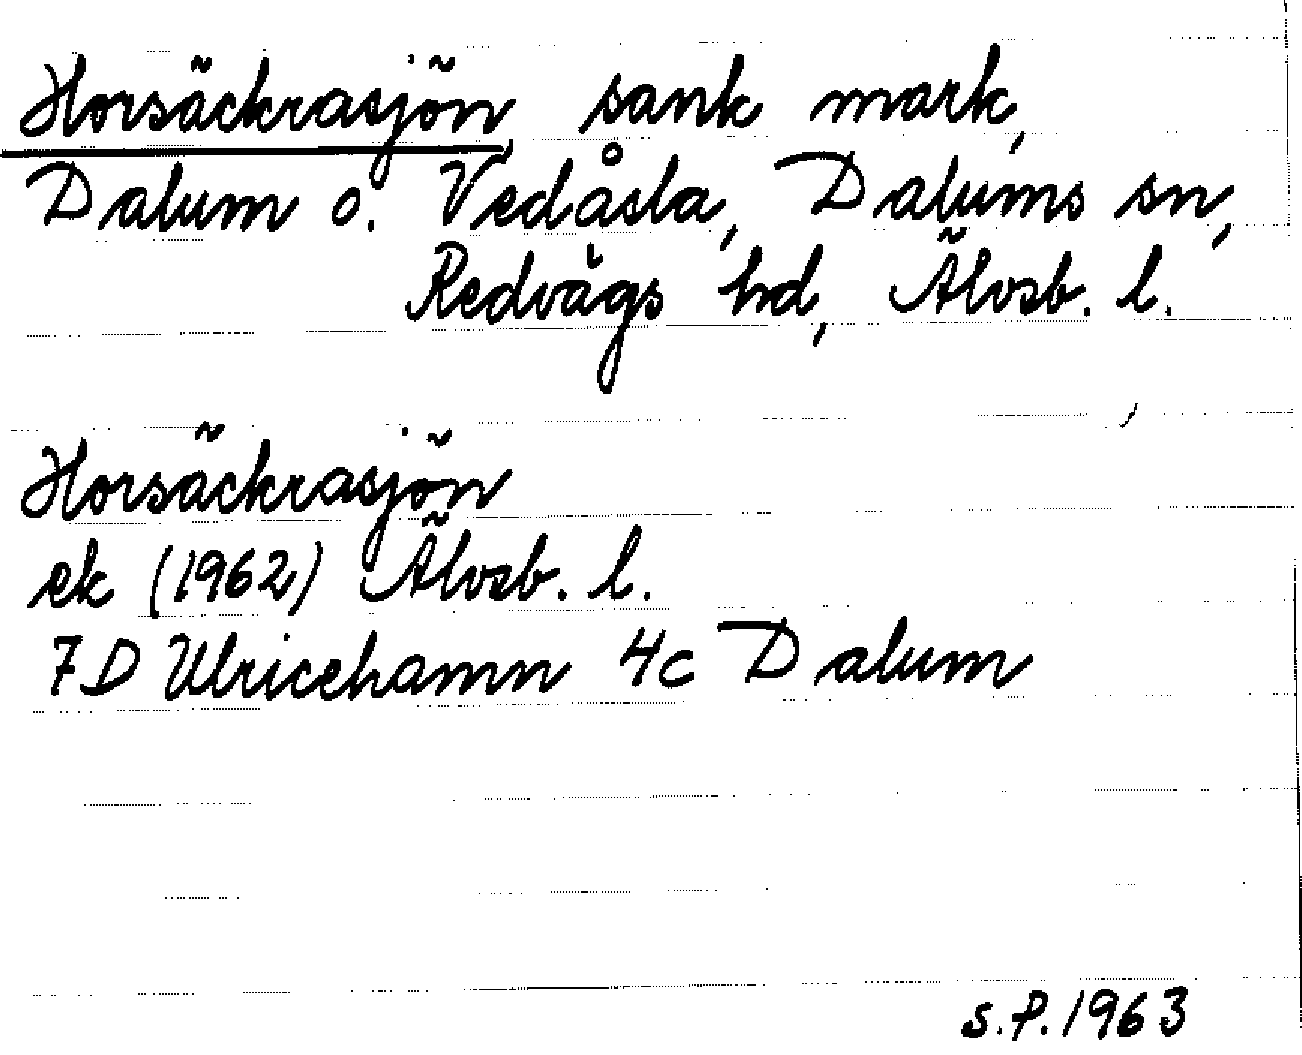 Horsäckrasjön, sank mark,
Dalum o. Vedåsla, Dalums sn,
Redvägs hd, Älvsb. l.
Horsäckrasjön
ek (1962) Älvsb. l.
7D Ulricehamn 4c Dalum
S.P. 1963